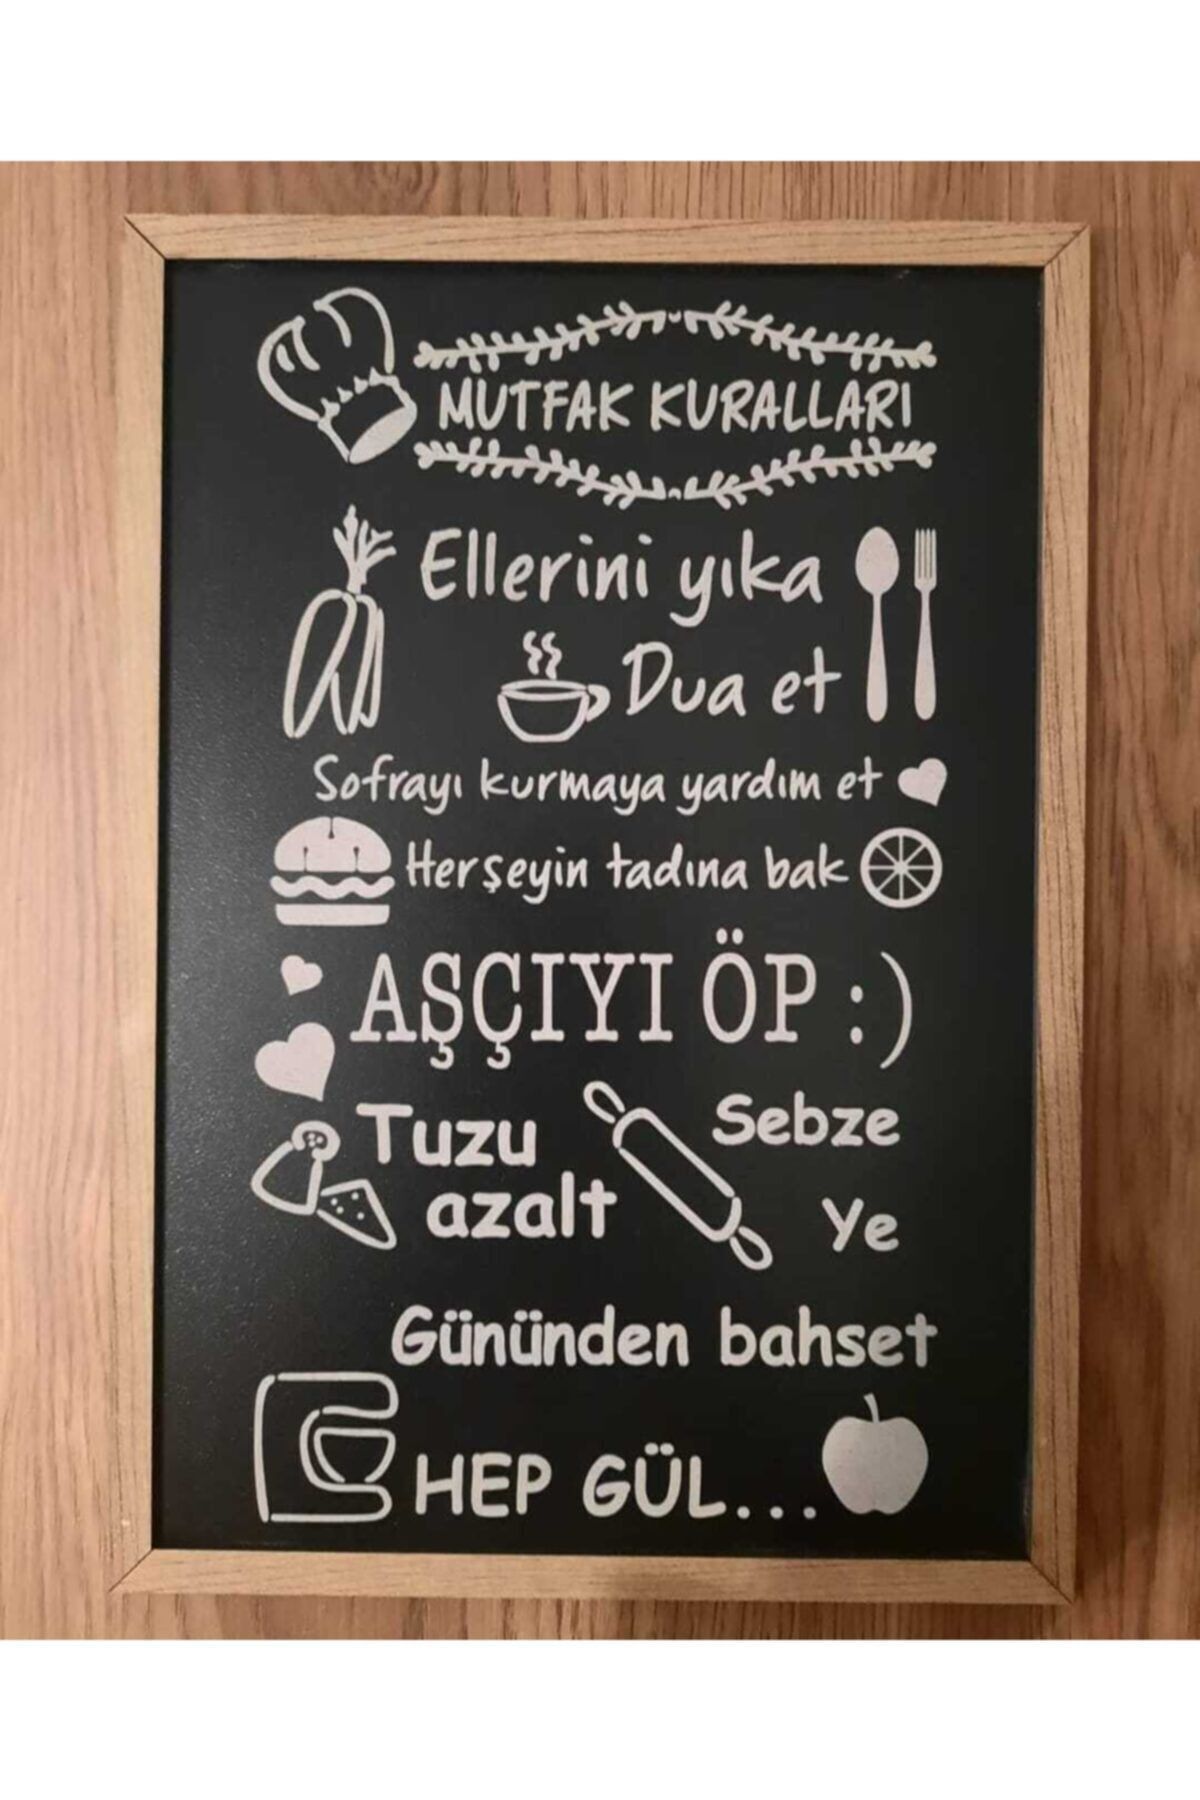 MUTFAK KURALLARI
Ellerini yıka
Dua et
Sofrayı kurmaya yardım et
Herşeyin tadına bak
AŞÇIYI ÖP :)
Tuzu
azalt
Sebze
Ye
Gününden bahset
HEP GÜL...